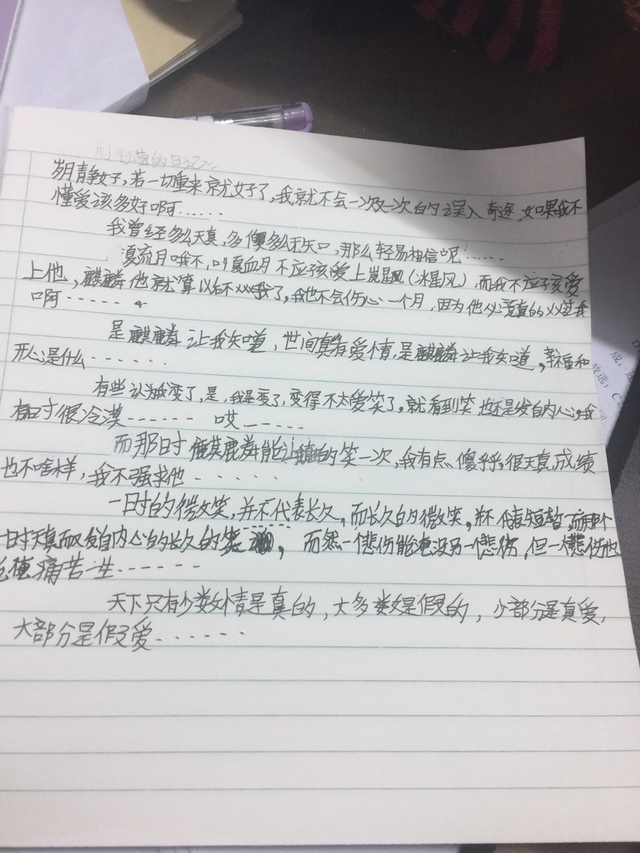 的日记
静好,若一切重来就好了,我就不会一次次的误入奇途,如果我不
懂爱该多好啊……
我曾经多么天真,多傻多么无知,那么轻易相信呢!……
流月哦不,叫夏血月不应该爱上岚风(冰星风),而我不应该爱
上他,麒麟他就算以后不 我了,我也不会伤心一个月,因为他 真的 过我
啊……
是麒麟让我知道,世间真有爱情,是麒麟让我知道,幸福和
开心是什么……
有些认为我变了,是,我是变了,变得不太爱笑了,就看到笑也还是发自内心,我
有时很冷漠…… 哎……
而那时 麒麟能让 的笑一次,我有点傻乎乎,很天真,成绩
也不啥样,我不强求他……
一时的微笑,并不代表长久,而长久的微笑,并不代表短暂,而那个
一时天真而发自内心的长久的笑 ,而然一个悲伤能淹没另一个悲伤,但一个悲伤也
能使痛苦一生……
天下只有少数情是真的,大多数是假的,少部分是真爱,
大部分是假爱……